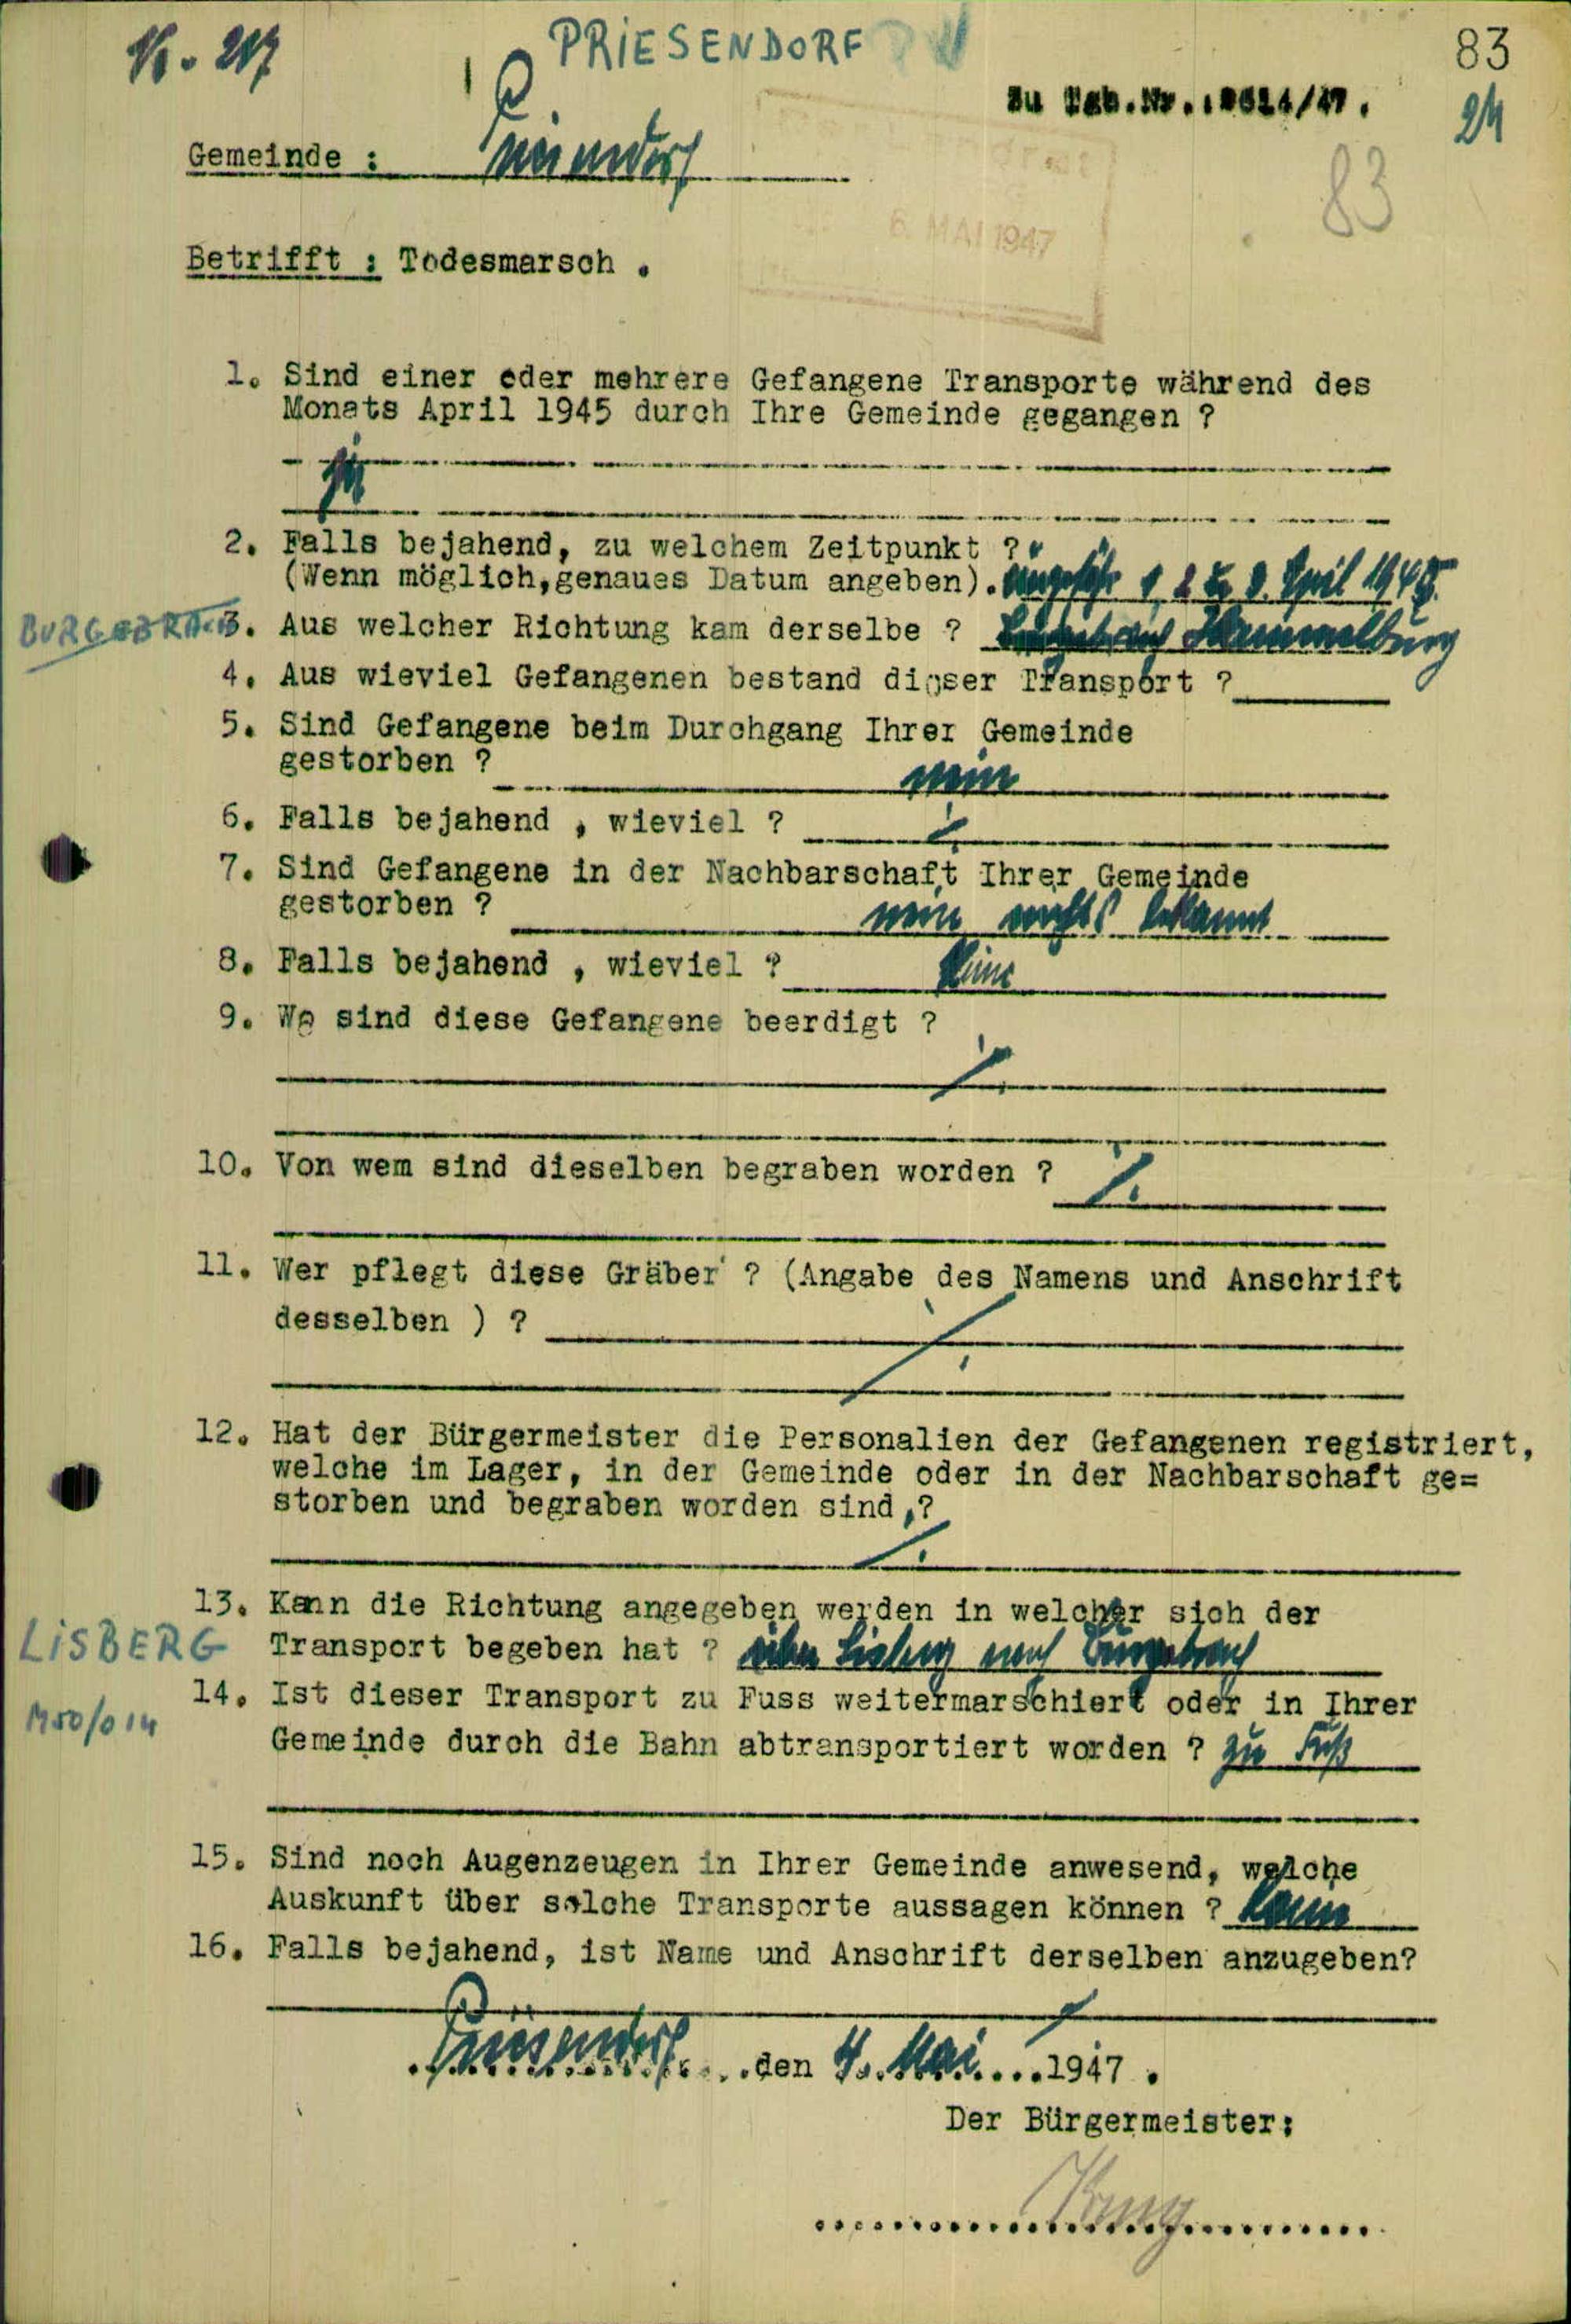 PRIESENDORF
83
zu Tgb.Nr.: 8624/47.
24
Gemeinde : Priesendorf
83
6. MAI 1947
Betrifft : Todesmarsch .
1. Sind einer oder mehrere Gefangene Transporte während des
Monats April 1945 durch Ihre Gemeinde gegangen ?
ja
2. Falls bejahend, zu welchem Zeitpunkt ?
(Wenn möglich,genaues Datum angeben). ungefähr April 1945.
BURGEBRACH
3. Aus welcher Richtung kam derselbe ? Hammelburg
4. Aus wieviel Gefangenen bestand dieser Transport ?
5. Sind Gefangene beim Durchgang Ihrer Gemeinde
gestorben ? nein
6. Falls bejahend , wieviel ?
7. Sind Gefangene in der Nachbarschaft Ihrer Gemeinde
gestorben ? nein nichts bekannt
8. Falls bejahend , wieviel ? Keine
9. Wo sind diese Gefangene beerdigt ?
10. Von wem sind dieselben begraben worden ?
11. Wer pflegt diese Gräber ? (Angabe des Namens und Anschrift
desselben ) ?
12. Hat der Bürgermeister die Personalien der Gefangenen registriert,
welche im Lager, in der Gemeinde oder in der Nachbarschaft ge=
storben und begraben worden sind,?
13. Kann die Richtung angegeben werden in welcher sich der
LISBERG
Transport begeben hat ? über Lisberg nach Burgebrach
14. Ist dieser Transport zu Fuss weitermarschiert oder in Ihrer
M50/014
Gemeinde durch die Bahn abtransportiert worden ? zu Fuß
15. Sind noch Augenzeugen in Ihrer Gemeinde anwesend, welche
Auskunft über solche Transporte aussagen können ?
16. Falls bejahend, ist Name und Anschrift derselben anzugeben?
Priesendorf den 4. Mai 1947 .
Der Bürgermeister:
Krug